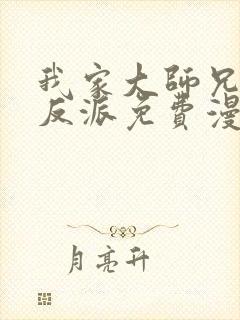 我家大师兄
反派免費漫
月亮升